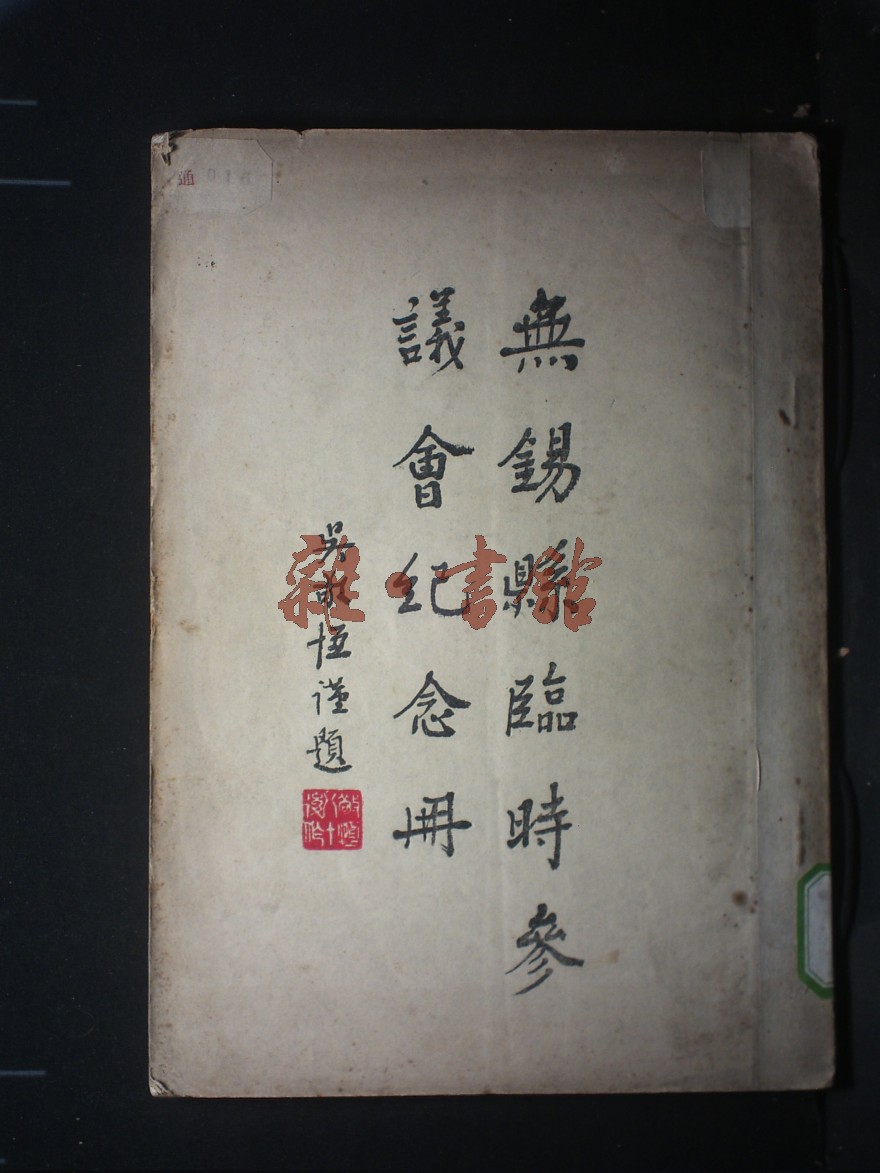 無錫縣臨時參
議會紀念冊
吳敬恆謹題
通 016
雜·書館